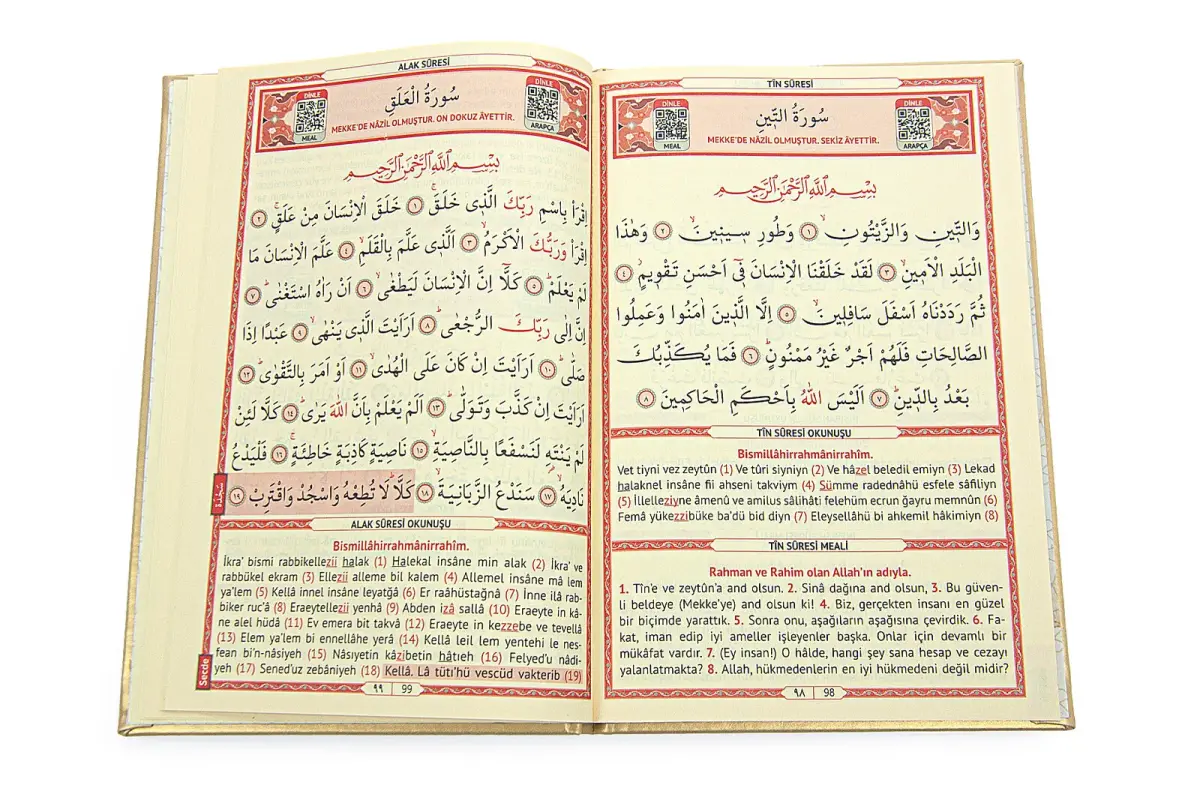 TÎN SÛRESİ
DİNLE
MEAL
سُورَةُ التّ۪ينِ
MEKKE'DE NÂZİL OLMUŞTUR. SEKİZ ÂYETTİR.
DİNLE
ARAPÇA
بِسْمِ اللّٰهِ الرَّحْمٰنِ الرَّح۪يمِ
وَالتّ۪ينِ وَالزَّيْتُونِۙ ﴿١﴾ وَطُورِ س۪ين۪ينَۙ ﴿٢﴾ وَهٰذَا
الْبَلَدِ الْاَم۪ينِۙ ﴿٣﴾ لَقَدْ خَلَقْنَا الْاِنْسَانَ ف۪ٓي اَحْسَنِ تَقْو۪يمٍۘ ﴿٤﴾
ثُمَّ رَدَدْنَاهُ اَسْفَلَ سَافِل۪ينَۙ ﴿٥﴾ اِلَّا الَّذ۪ينَ اٰمَنُوا وَعَمِلُوا
الصَّالِحَاتِ فَلَهُمْ اَجْرٌ غَيْرُ مَمْنُونٍۜ ﴿٦﴾ فَمَا يُكَذِّبُكَ
بَعْدُ بِالدّ۪ينِۜ ﴿٧﴾ اَلَيْسَ اللّٰهُ بِاَحْكَمِ الْحَاكِم۪ينَ ﴿٨﴾
TÎN SÛRESİ OKUNUŞU
Bismillâhirrahmânirrahîm.
Vet tiyni vez zeytûn (1) Ve tûri siyniyn (2) Ve hâzel beledil emiyn (3) Lekad
halaknel insâne fii ahseni takviym (4) Sümme radednâhü esfele sâfiliyn
(5) İllelleziyne âmenû ve amilus sâlihâti felehüm ecrun ğayru memnûn (6)
Femâ yükezzibüke ba'dü bid diyn (7) Eleysellâhü bi ahkemil hâkimiyn (8)
TÎN SÛRESİ MEALİ
Rahman ve Rahim olan Allah'ın adıyla.
1. Tîn'e ve zeytûn'a and olsun. 2. Sinâ dağına and olsun, 3. Bu güven-
li beldeye (Mekke'ye) and olsun ki! 4. Biz, gerçekten insanı en güzel
bir biçimde yarattık. 5. Sonra onu, aşağıların aşağısına çevirdik. 6. Fa-
kat, iman edip iyi ameller işleyenler başka. Onlar için devamlı bir
mükâfat vardır. 7. (Ey insan!) O hâlde, hangi şey sana hesap ve cezayı
yalanlatmakta? 8. Allah, hükmedenlerin en iyi hükmedeni değil midir?
٩٨ 98
ALAK SÛRESİ
DİNLE
MEAL
سُورَةُ الْعَلَقِ
MEKKE'DE NÂZİL OLMUŞTUR. ON DOKUZ ÂYETTİR.
DİNLE
ARAPÇA
بِسْمِ اللّٰهِ الرَّحْمٰنِ الرَّح۪يمِ
اِقْرَأْ بِاسْمِ رَبِّكَ الَّذ۪ي خَلَقَۚ ﴿١﴾ خَلَقَ الْاِنْسَانَ مِنْ عَلَقٍۚ ﴿٢﴾
اِقْرَأْ وَرَبُّكَ الْاَكْرَمُۙ ﴿٣﴾ اَلَّذ۪ي عَلَّمَ بِالْقَلَمِۙ ﴿٤﴾ عَلَّمَ الْاِنْسَانَ مَا
لَمْ يَعْلَمْۜ ﴿٥﴾ كَلَّٓا اِنَّ الْاِنْسَانَ لَيَطْغٰىۙ ﴿٦﴾ اَنْ رَاٰهُ اسْتَغْنٰىۜ ﴿٧﴾
اِنَّ اِلٰى رَبِّكَ الرُّجْعٰىۜ ﴿٨﴾ اَرَاَيْتَ الَّذ۪ي يَنْهٰىۙ ﴿٩﴾ عَبْدًا اِذَا
صَلّٰىۜ ﴿١٠﴾ اَرَاَيْتَ اِنْ كَانَ عَلَى الْهُدٰىۙ ﴿١١﴾ اَوْ اَمَرَ بِالتَّقْوٰىۜ ﴿١٢﴾
اَرَاَيْتَ اِنْ كَذَّبَ وَتَوَلّٰىۜ ﴿١٣﴾ اَلَمْ يَعْلَمْ بِاَنَّ اللّٰهَ يَرٰىۜ ﴿١٤﴾ كَلَّا لَئِنْ
لَمْ يَنْتَهِ لَنَسْفَعًا بِالنَّاصِيَةِۙ ﴿١٥﴾ نَاصِيَةٍ كَاذِبَةٍ خَاطِئَةٍۚ ﴿١٦﴾ فَلْيَدْعُ
نَادِيَهُۙ ﴿١٧﴾ سَنَدْعُ الزَّبَانِيَةَۙ ﴿١٨﴾ كَلَّاۜ لَا تُطِعْهُ وَاسْجُدْ وَاقْتَرِبْ ﴿١٩﴾
سَجْدَة
ALAK SÛRESİ OKUNUŞU
Bismillâhirrahmânirrahîm.
İkra' bismi rabbikellezii halak (1) Halekal insâne min alak (2) İkra' ve
rabbükel ekram (3) Ellezii alleme bil kalem (4) Allemel insâne mâ lem
ya'lem (5) Kellâ innel insâne leyatğâ (6) Er raâhüstağnâ (7) İnne ilâ rab-
biker ruc'â (8) Eraeytellezii yenhâ (9) Abden izâ sallâ (10) Eraeyte in kâ-
ne alel hüdâ (11) Ev emera bit takvâ (12) Eraeyte in kezzebe ve tevellâ
(13) Elem ya'lem bi ennellâhe yerâ (14) Kellâ leil lem yentehi le nes-
fean bi'n-nâsiyeh (15) Nâsıyetin kâzibetin hâtıeh (16) Felyed'u nâdi-
yeh (17) Sened'uz zebâniyeh (18) Kellâ, Lâ tütı'hü vescüd vakterib (19)
Secde
٩٩ 99